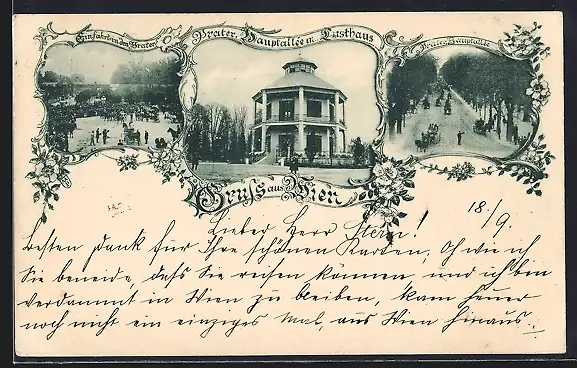 Einfahrt in den Prater.
Prater, Hauptallée m. Lusthaus
Prater Hauptallée
Gruss aus Wien
18./9.
Lieber Herr Stern!
Besten Dank für Ihre schönen Karten, Oh wie ich
Sie beneide, daß Sie reisen können und ich bin
verdammt in Wien zu bleiben, kam heuer
noch nicht ein einziges Mal, aus Wien hinaus.